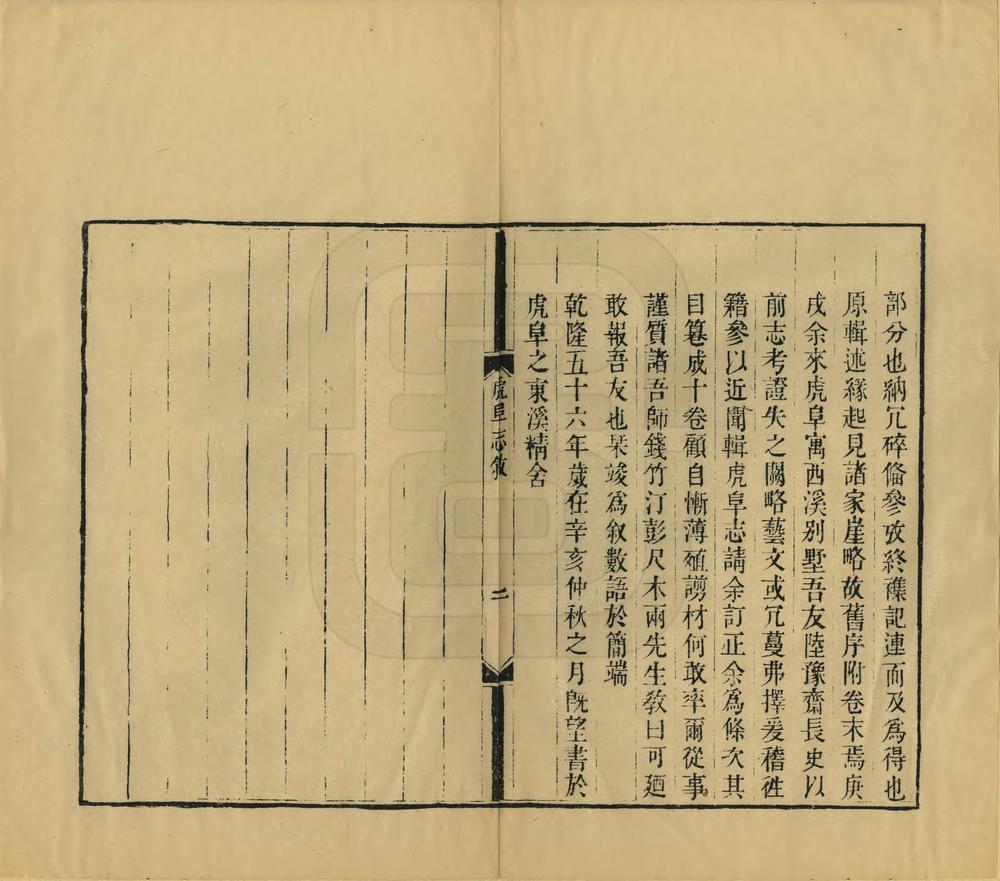 部分也納冗碎偹參攷終襍記連而及爲得也
原輯述緣起見諸家崖略故舊序附卷末焉庚
戌余來虎阜寓西溪別墅吾友陸豫齋長史以
前志考證失之闕略藝文或冗蔓弗擇爰稽徃
籍參以近聞輯虎阜志請余訂正余爲條次其
目篹成十卷顧自慚薄殖謭材何敢率爾從事
謹質諸吾師錢竹汀彭尺木兩先生敎曰可廼
敢報吾友也栞竣爲叙數語於簡端
乾隆五十六年歲在辛亥仲秋之月旣望書於
虎阜之東溪精舍
虎阜志敘
二